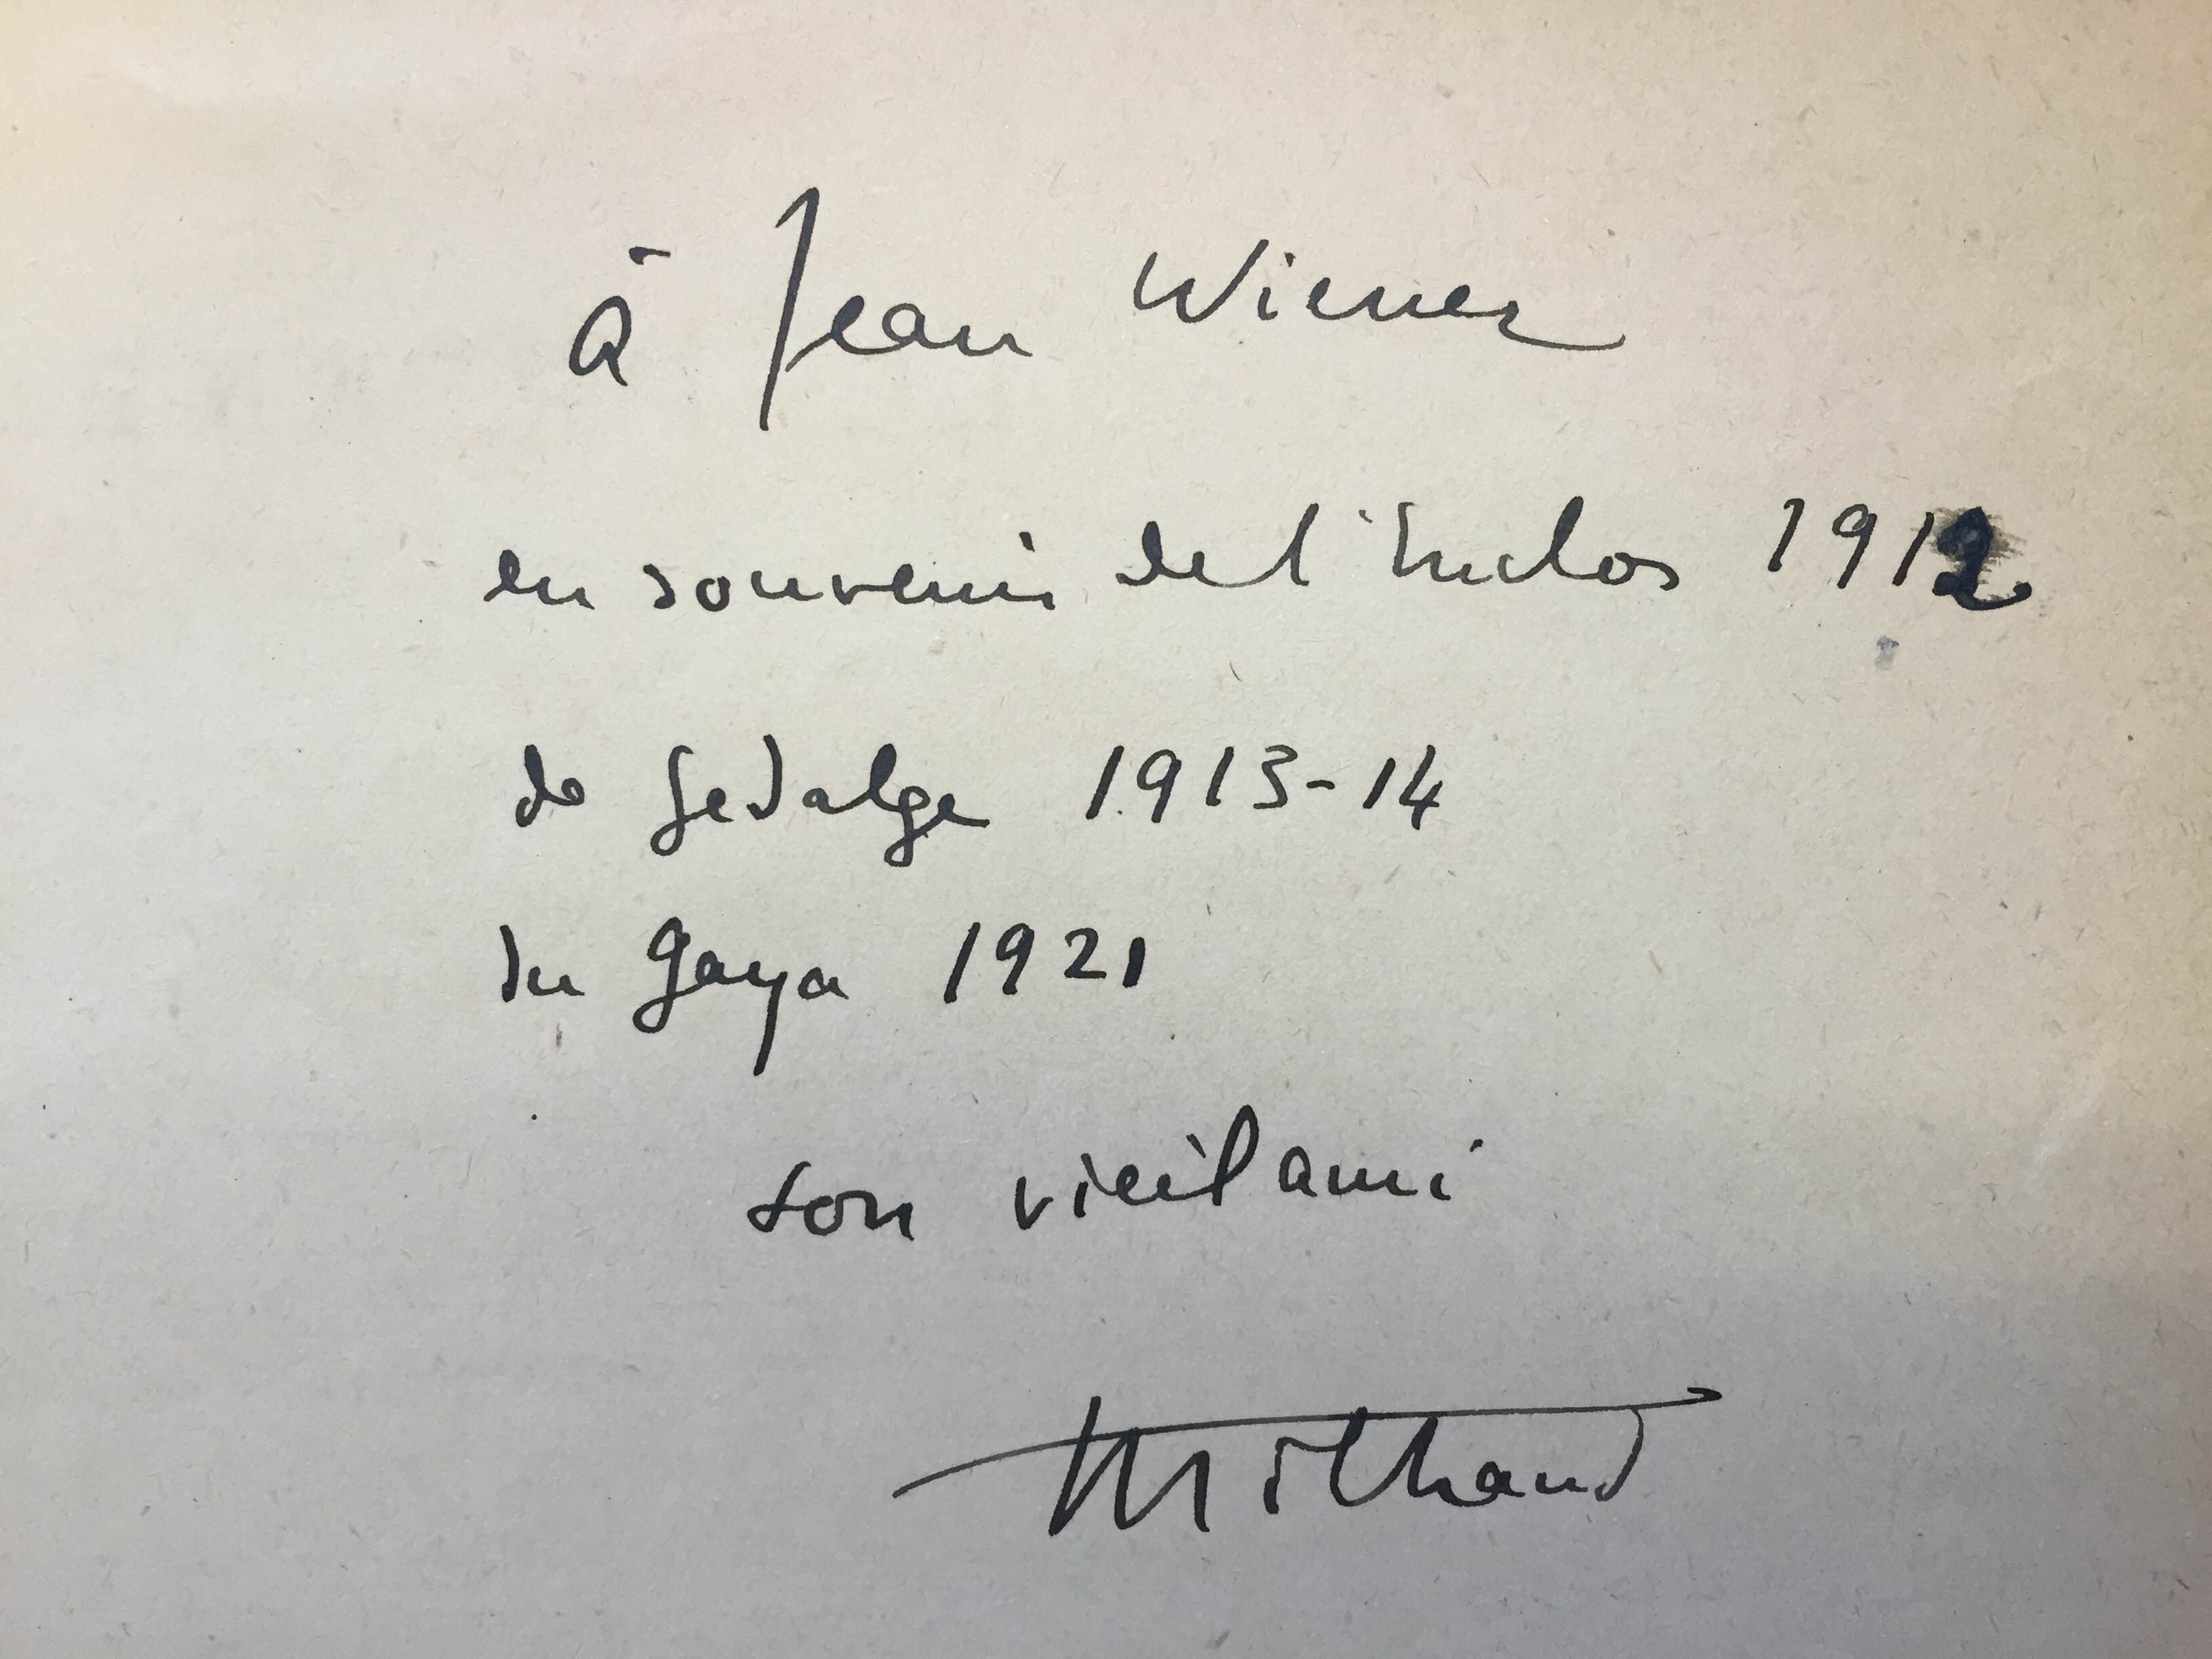 à Jean Wiener
en souvenir de l'Enclos 1912
de Gedalge 1913-14
du Gaya 1921
son vieil ami
Milhaud